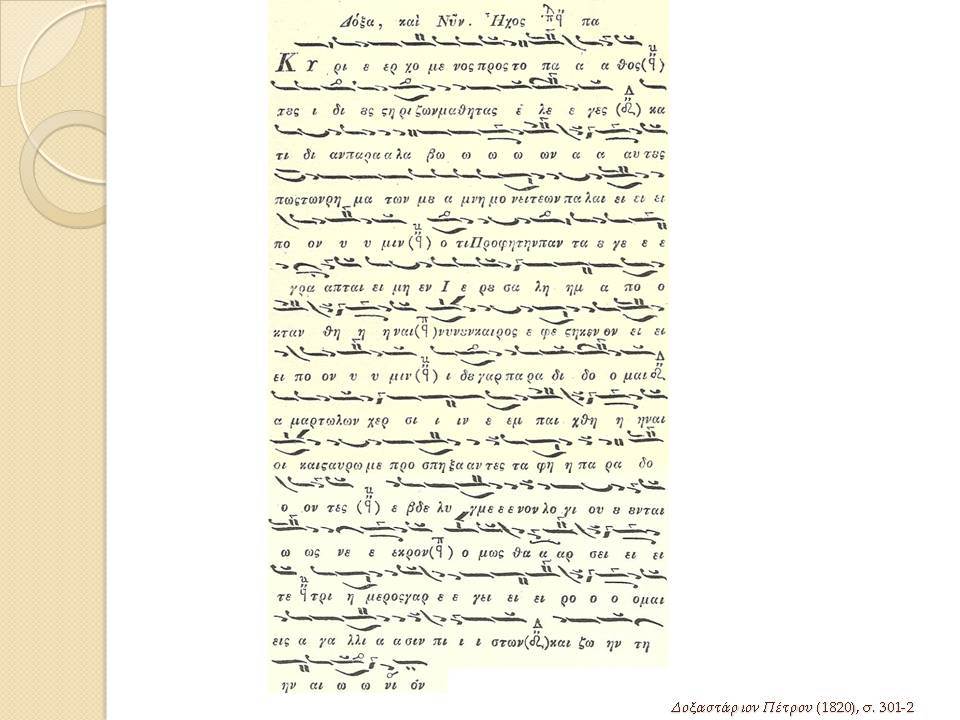 Δόξα, καὶ Νῦν. Ἦχος πα
Κ υ ρι ε ερ χο με νος προς το πα α α θος
τȣς ι δι ȣς ϛη ρι ζων μαθητας ε λε ε γες κα
τι δι αν παρα α λα βω ω ω ω ων α α αυ τȣς
πως των ρη μα των μȣ α μνη μο νει τε ων πα λαι ει ει ει
πο ον υ υ μιν ο τι Προφητην παν τα ȣ γε ε ε
γρα απται ει μη εν Ι ε ρȣ σα λη ημ α πο ο
κταν θη η η ναι νυν ȣν καιρος ε φε ϛηκεν ον ει ει
ει πο ον υ υ μιν ι δȣ γαρ πα ρα δι δο ο μαι
α μαρτωλων χερ σι ι ιν ε εμ παι χθη η ηναι
οι και ϛαυρω με προ σπηξα αντες τα φη η πα ρα δο
ο ον τες ε βδε λυ γμε ε ε νον λο γι ου ȣ ȣνται
ω ως νε ε εκρον ο μως θα α αρ σει ει ει
τε τρι η μερος γαρ ε ε γει ει ει ρο ο ο ομαι
εις α γα λλι α ασιν πι ι ι στων και ζω ην τη
ην αι ω ω νι ον
Δοξαστάριον Πέτρου (1820), σ. 301-2